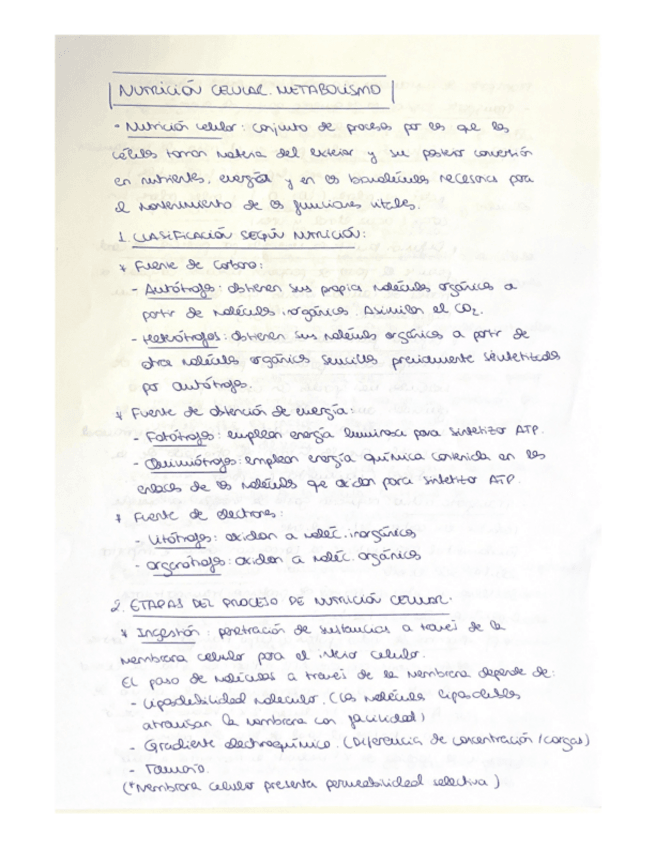 NUTRICIÓN CELULAR. METABOLISMO
- Nutrición celular: conjunto de procesos por los que las
células toman materia del exterior y su posterior conversión
en nutrientes, energía y en las biomoléculas necesarias para
el mantenimiento de las funciones vitales.
1. CLASIFICACIÓN SEGÚN NUTRICIÓN:
* Fuente de Carbono:
- Autótrofos: obtienen sus propias moléculas orgánicas a
partir de moléculas inorgánicas. Asimilan el CO₂.
- Heterótrofos: obtienen sus moléculas orgánicas a partir de
otras moléculas orgánicas sencillas previamente sintetizadas
por autótrofos.
* Fuente de obtención de energía:
- Fotótrofos: emplean energía luminosa para sintetizar ATP.
- Quimiótrofos: emplean energía química contenida en los
enlaces de las moléculas que oxidan para sintetizar ATP.
* Fuente de electrones:
- Litótrofos: oxidan a moléc. inorgánicas
- organótrofos: oxidan a moléc. orgánicas
2. ETAPAS DEL PROCESO DE NUTRICIÓN CELULAR.
* Ingestión: penetración de sustancias a través de la
membrana celular para el inicio celular.
El paso de moléculas a través de la membrana depende de:
- Liposolubilidad molecular. (las moléculas liposolubles
atraviesan la membrana con facilidad)
- Gradiente electroquímico. (Diferencia de concentración / cargas)
- Tamaño.
(*Membrana celular presenta permeabilidad selectiva)